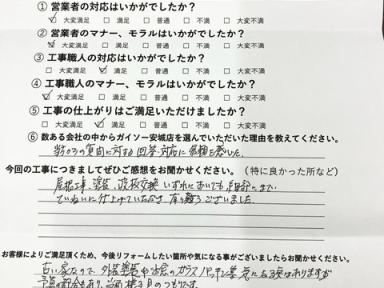 ① 営業者の対応はいかがでしたか？
☑ 大変満足 □ 満足 □ 普通 □ 不満 □ 大変不満
② 営業者のマナー、モラルはいかがでしたか？
☑ 大変満足 □ 満足 □ 普通 □ 不満 □ 大変不満
③ 工事職人の対応はいかがでしたか？
□ 大変満足 ☑ 満足 □ 普通 □ 不満 □ 大変不満
④ 工事職人のマナー、モラルはいかがでしたか？
☑ 大変満足 □ 満足 □ 普通 □ 不満 □ 大変不満
⑤ 工事の仕上がりはご満足いただけましたか？
□ 大変満足 ☑ 満足 □ 普通 □ 不満 □ 大変不満
⑥ 数ある会社の中からガイソー安城店を選んでいただいた理由を教えてください。
質問に対する回答・対応に信頼を感じた。
今回の工事につきましてぜひご感想をお聞かせください。（特に良かった所など）
屋根工事、塗装、波板交換 いずれにおいても 細部にまで
ていねいに仕上げていただき、有り難うございました。
お客様によりご満足頂くため、今後リフォームしたい箇所や気になる事がございましたらお聞かせください。
古い家なので、外装塗装や